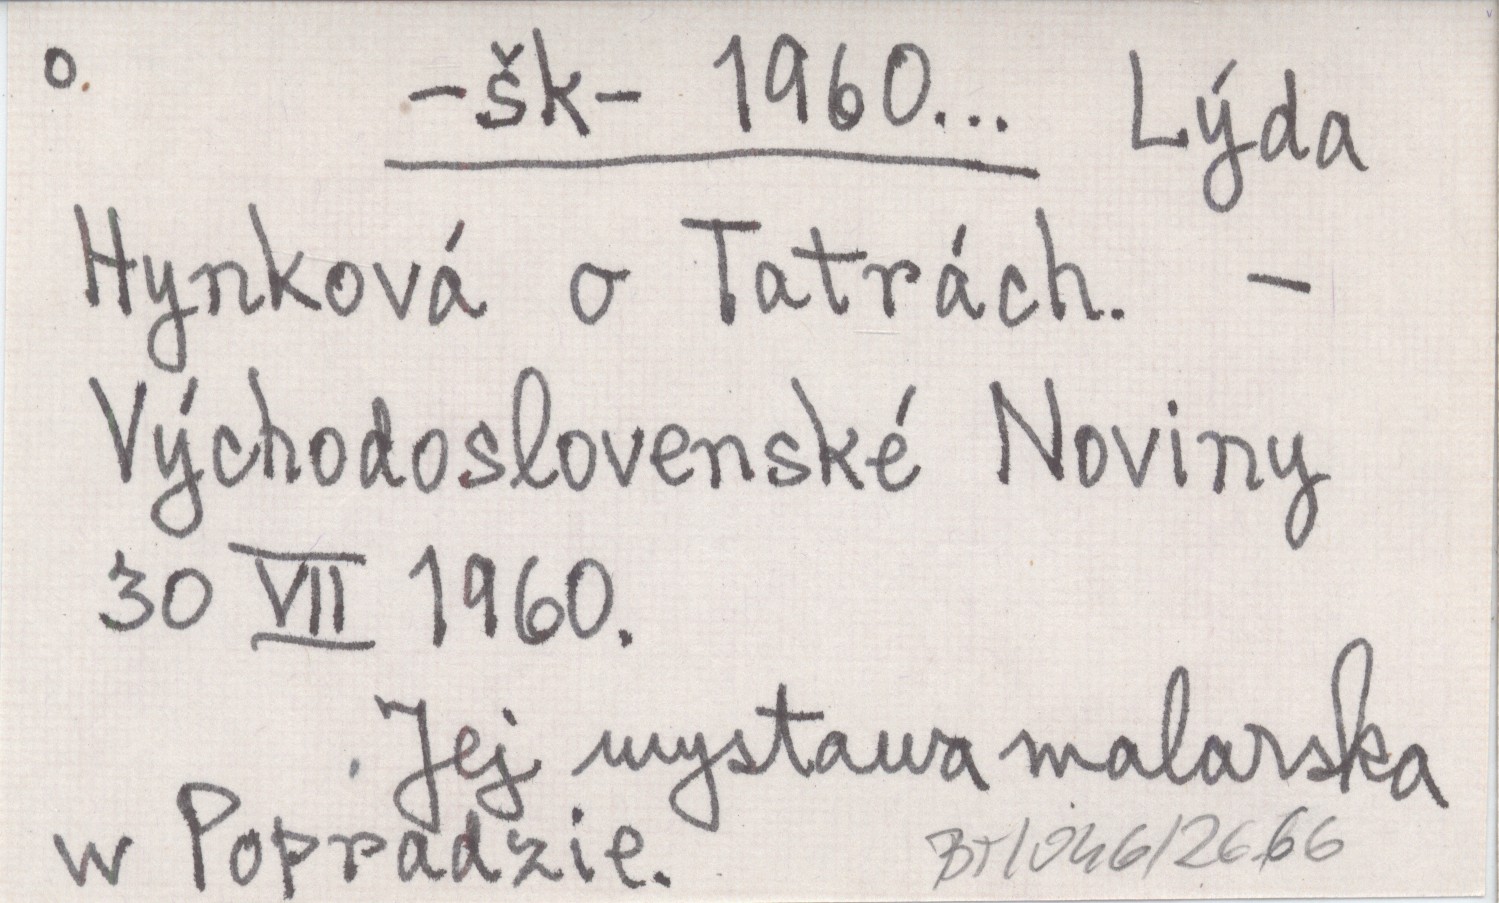 o. -šk- 1960... Lýda
Hynková o Tatrách. -
Východoslovenské Noviny
30 VII 1960.
Jej wystawa malarska
w Popradzie.